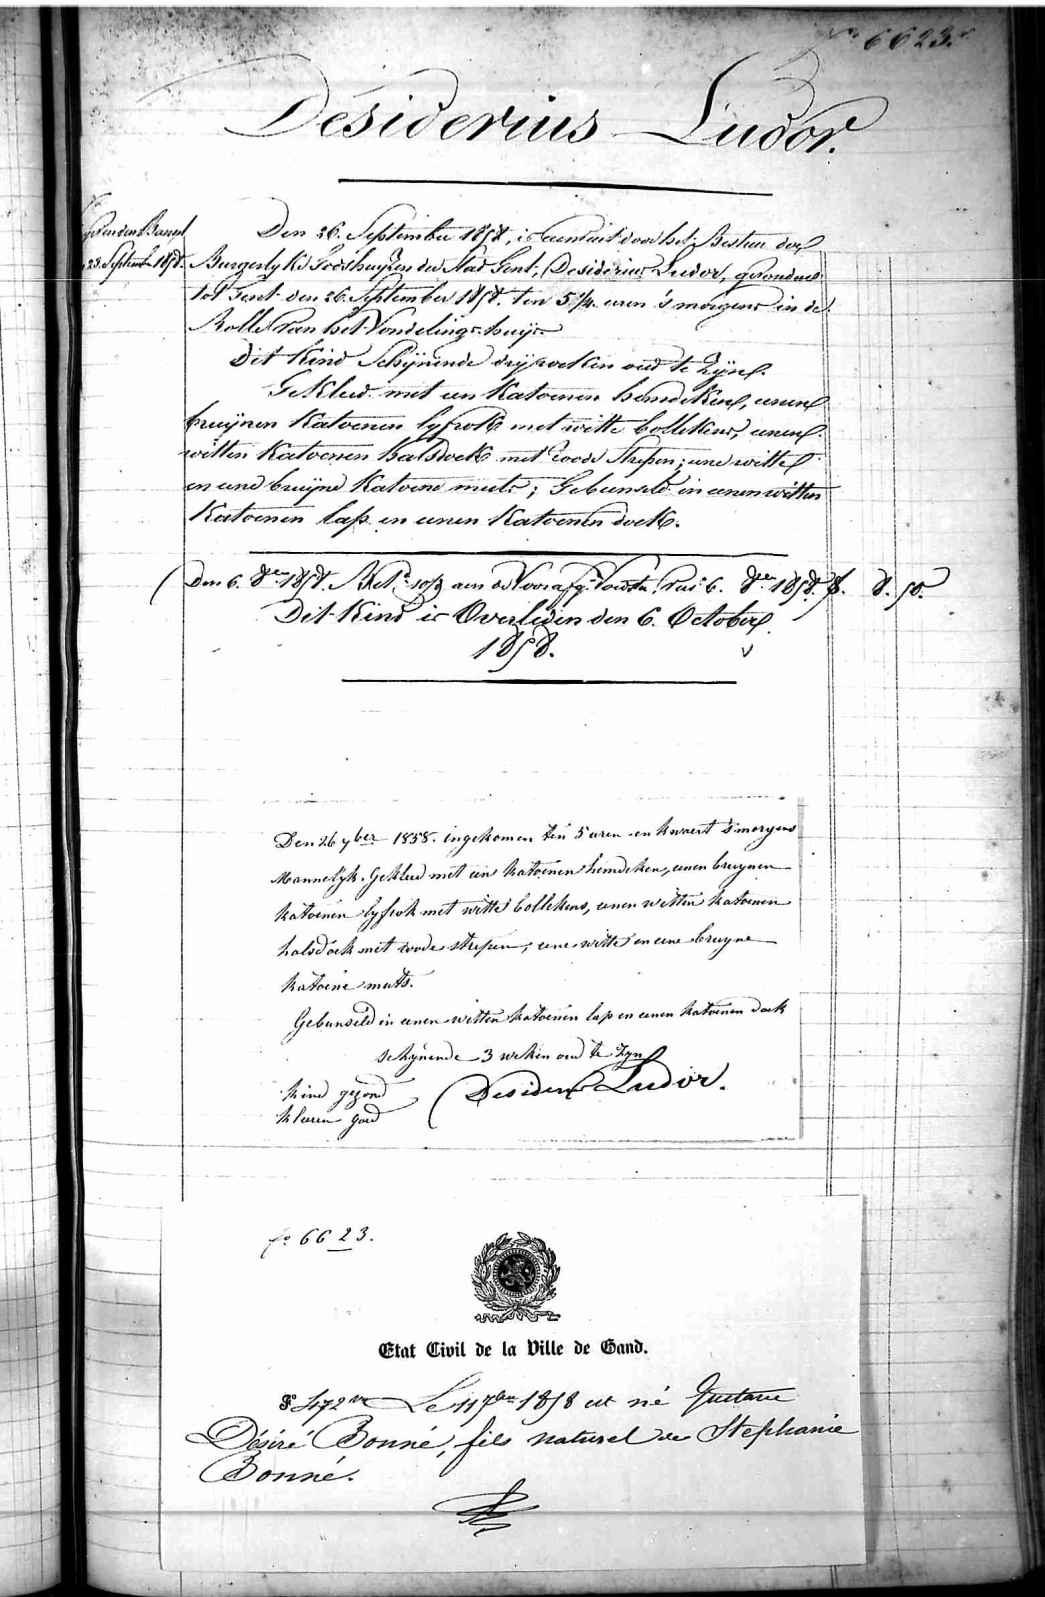 N.o 6623.
Desiderius Ludor.
Den 26. September 1858, is door het Bestuur der
23. September 1858.
Burgerlyke Godshuyzen der Stad Gent, Desiderius Ludor, gevonden
tot Gent den 26. September 1858. ten 5 1/4 uren 's morgens in de
Rolle van het Vondelings-huys
Dit Kind Schijnende dry weken oud te Zijn.
Gekleed met een Katoenen hemdeken, eenen
bruijnen Katoenen lyfrok met witte bollekens, eenen
witten Katoenen halsdoek met roode Strepen; eene witte
en eene bruijne Katoene muts; Gebunseld in eenen witten
Katoenen lap en eenen Katoenen doek.
Den 6. 8er 1858. aen 6. 8er 1858. f. 8. 50.
Dit Kind is Overleden den 6. October
1858.
Den 26 7ber 1858. ingekomen ten 5 uren en kwaert 's morgens
Mannelyk. Gekleed met een katoenen hemdeken, eenen bruynen
katoenen lyfrok met witte bollekens, eenen witten katoenen
halsdoek met roode strepen; eene witte en eene bruyne
katoene muts.
Gebunseld in eenen witten katoenen lap en eenen katoenen doek
schynende 3 weken oud te zyn
kind gezond
Desiderius Ludor.
kleeren goed
fo. 6623.
Etat Civil de la Ville de Gand.
Le 11 7bre 1858 est né Gustave
Désiré Bonné, fils naturel de Stephanie
Bonné.